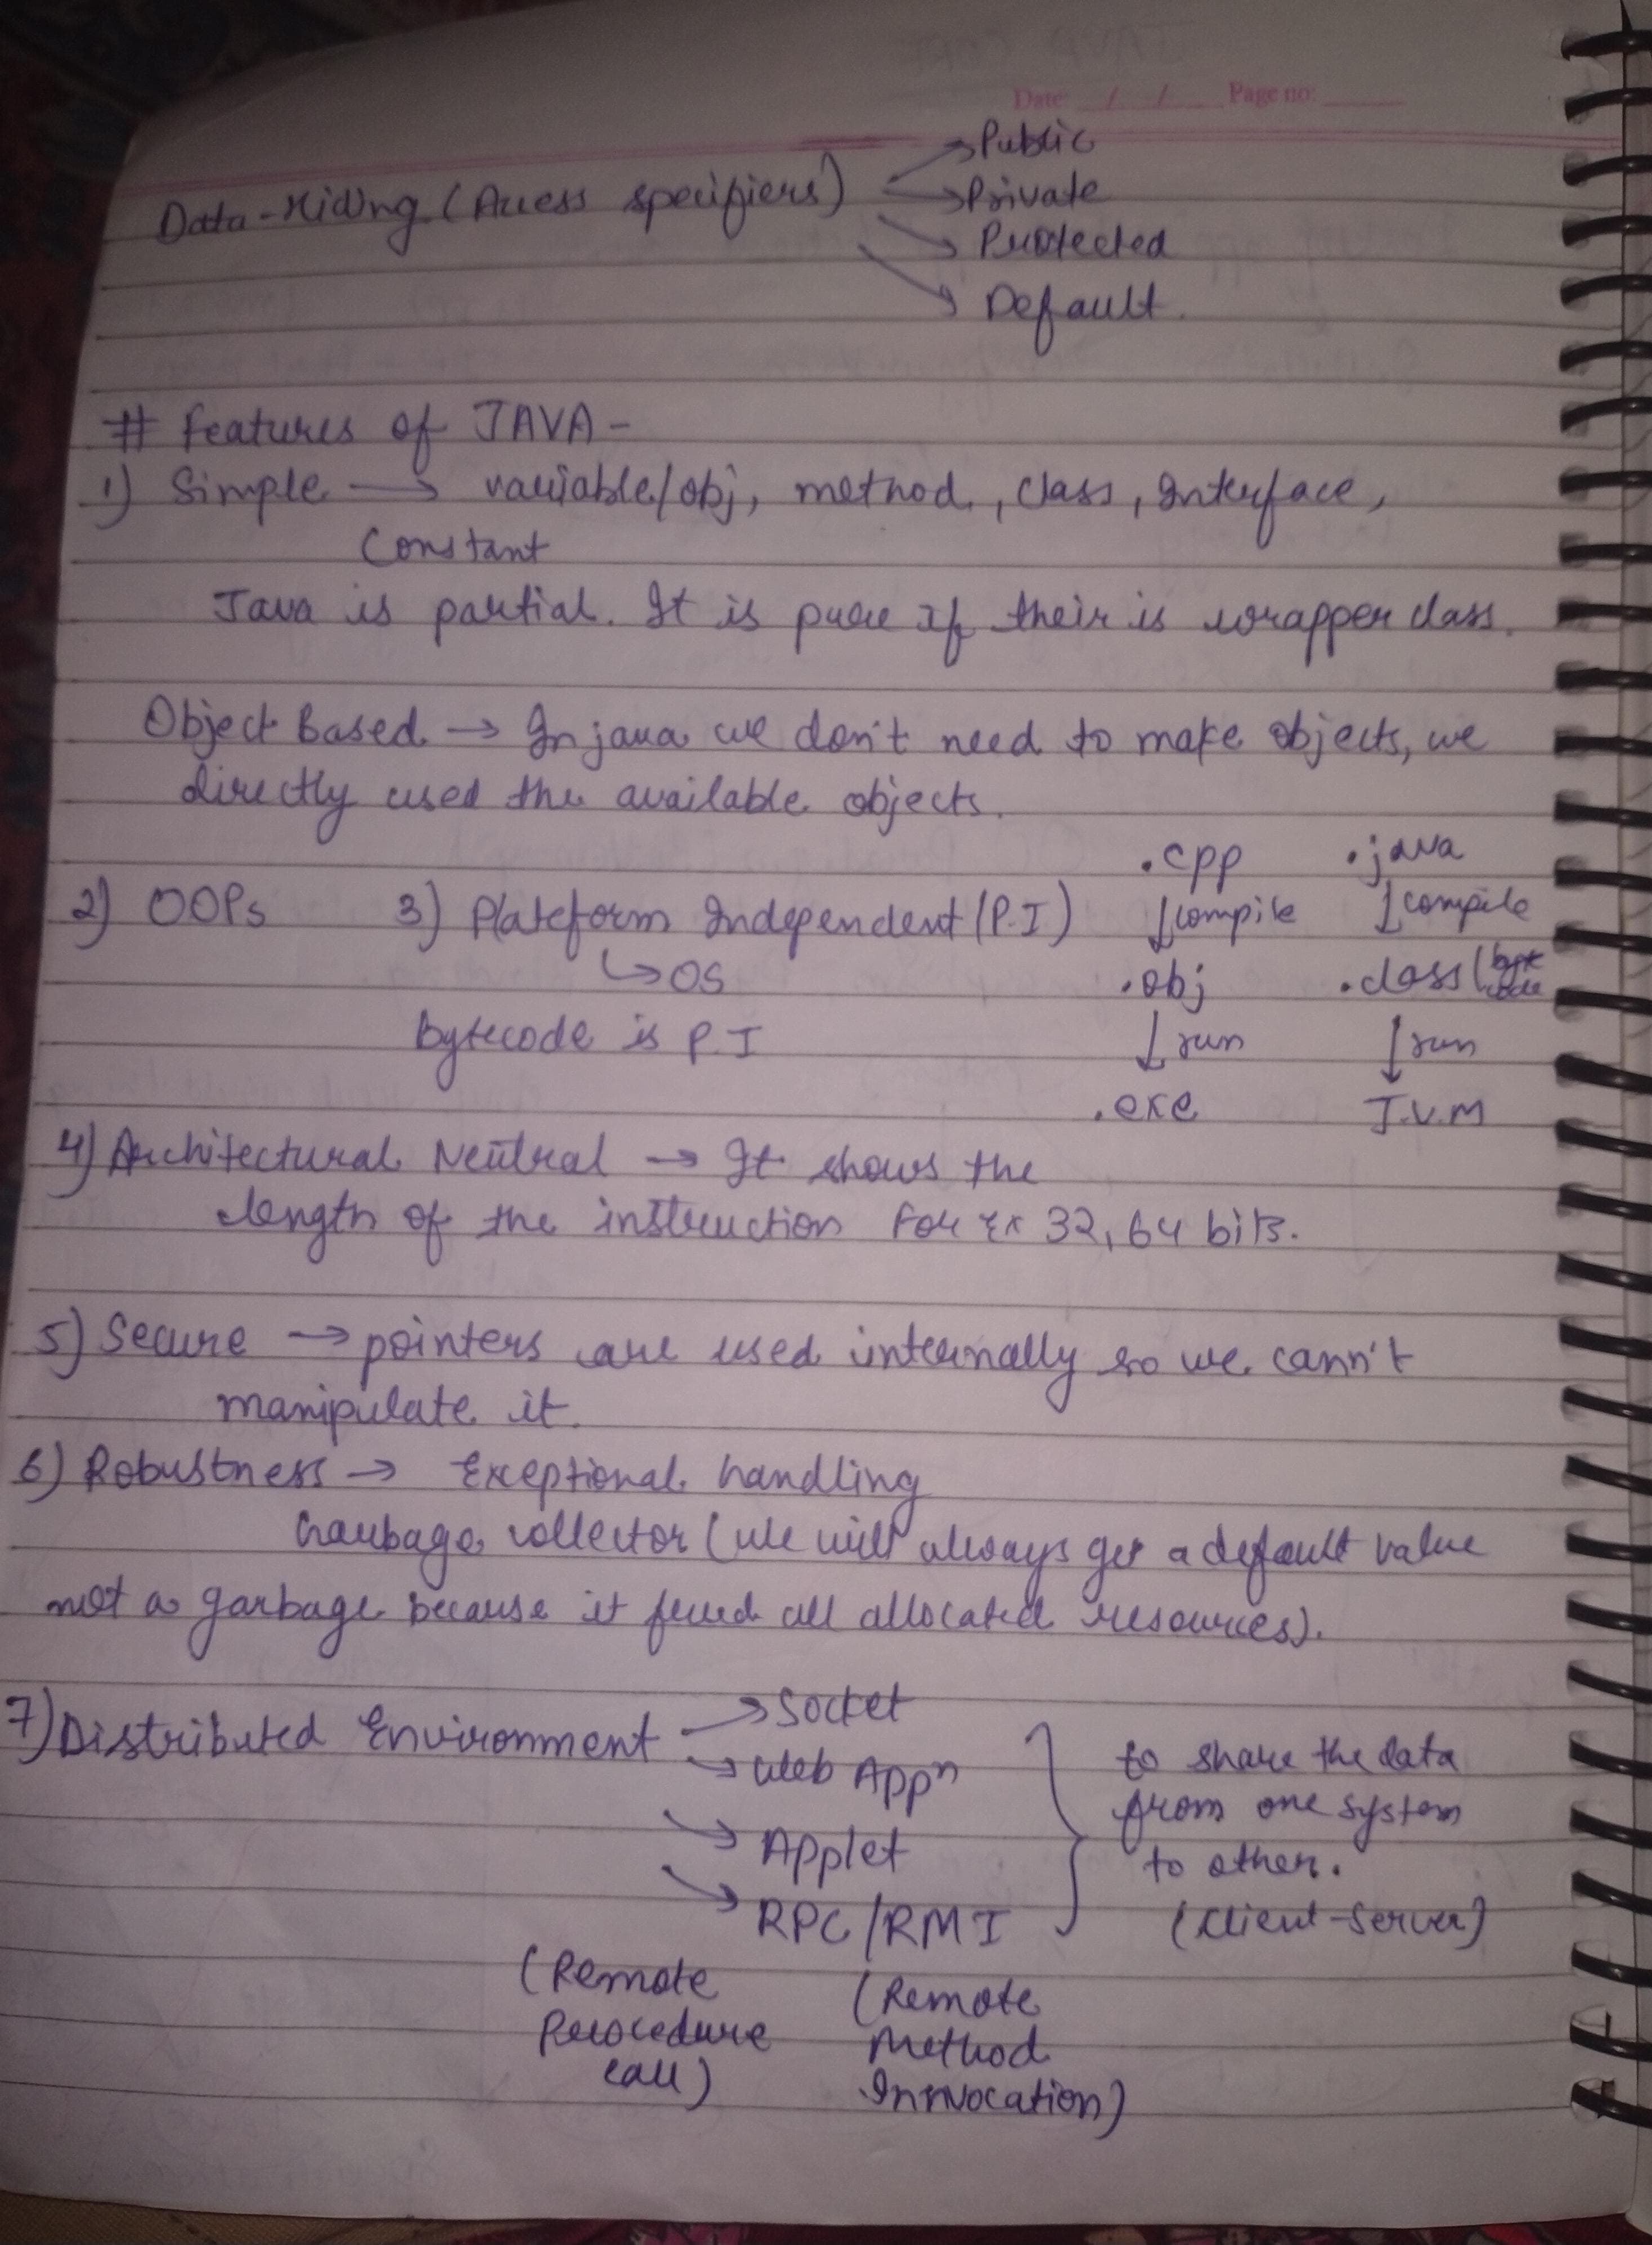 Date / / Page no:
Data-Hiding (Access specifiers) → Public
→ Private
→ Protected
→ Default.
# Features of JAVA -
1) Simple → variable/obj, method, class, Interface,
Constant
Java is partial. It is pure if their is wrapper class.
Object Based → In java we don't need to make objects, we
directly used the available objects.
2) OOPs 3) Plateform Independent (P.I)
↳ OS
bytecode is P.I
.cpp
↓ compile
.obj
↓ run
.exe
.java
↓ compile
.class (byte
code
↓ run
J.V.M
4) Architectural Neutral → It shows the
length of the instruction For Ex 32, 64 bits.
5) Secure → pointers are used internally so we cann't
manipulate it.
6) Robustness → Exceptional handling
Garbage collector (We will always get a default value
not a garbage because it freed all allocated resources).
7) Distributed Environment → Socket
→ Web Appⁿ
→ Applet
→ RPC/RMI
(Remote
Procedure
call)
(Remote
Method
Innvocation)
to share the data
from one system
to other.
(Client-Server)